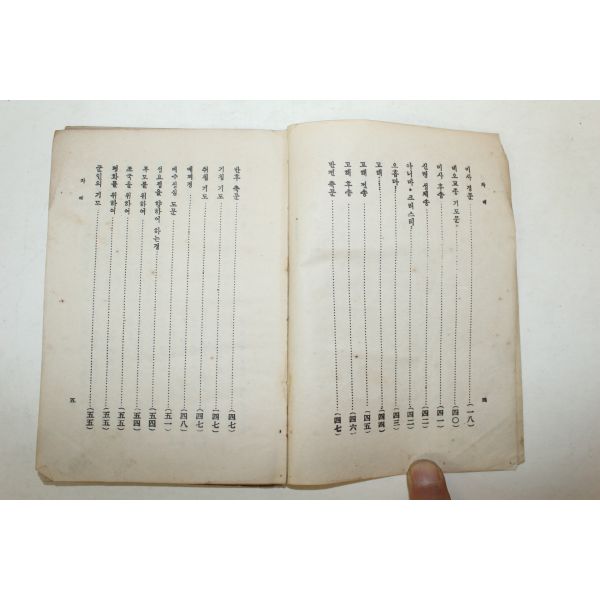 차 례
미사 경문 (一八)
레오교종 기도문 (四〇)
미사 후송 (四一)
신령 성체송 (四二)
아니마•크리스티! (四二)
오 흡다! (四三)
고해! (四四)
고해 전송 (四五)
고해 후송 (四六)
반전 축문 (四七)
四
반후 축문 (四七)
기침 기도 (四七)
취침 기도 (四七)
매괴경 (四八)
예수성심 도문 (五一)
성요셉을 향하여 하는 경 (五四)
부모를 위하여 (五四)
조국을 위하여 (五五)
평화를 위하여 (五五)
군인의 기도 (五五)
차 례
五